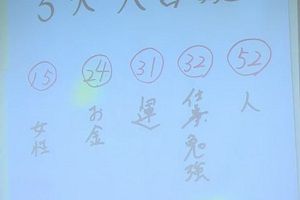 15 女性
24 お金
31 運
32 仕事 勉強
52 人